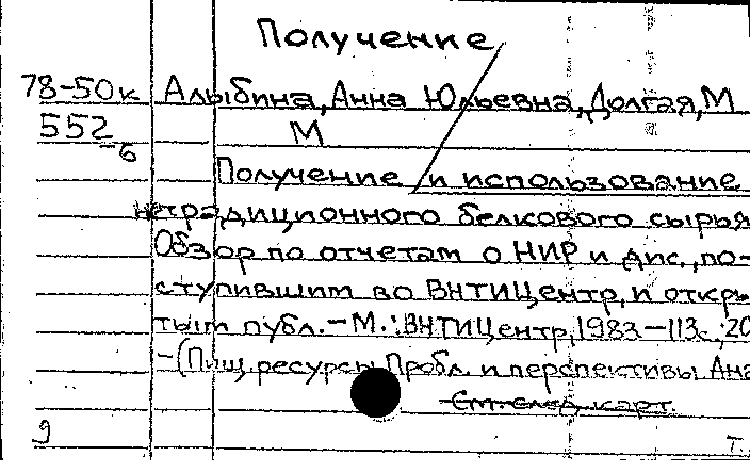 Получение
78-50к Алыбина, Анна Юрьевна, Долгая, М
552 М
-6
Получение и использование
нетрадиционного белкового сырья
Обзор по отчетам о НИР и дис., по-
ступившим во ВНТИЦентр, и откры
тым публ. - М.: ВНТИЦентр, 1983 - 113с., 20
- (Пищ. ресурсы Пробл. и перспективы Ана
См. след. карт.
9 Т.